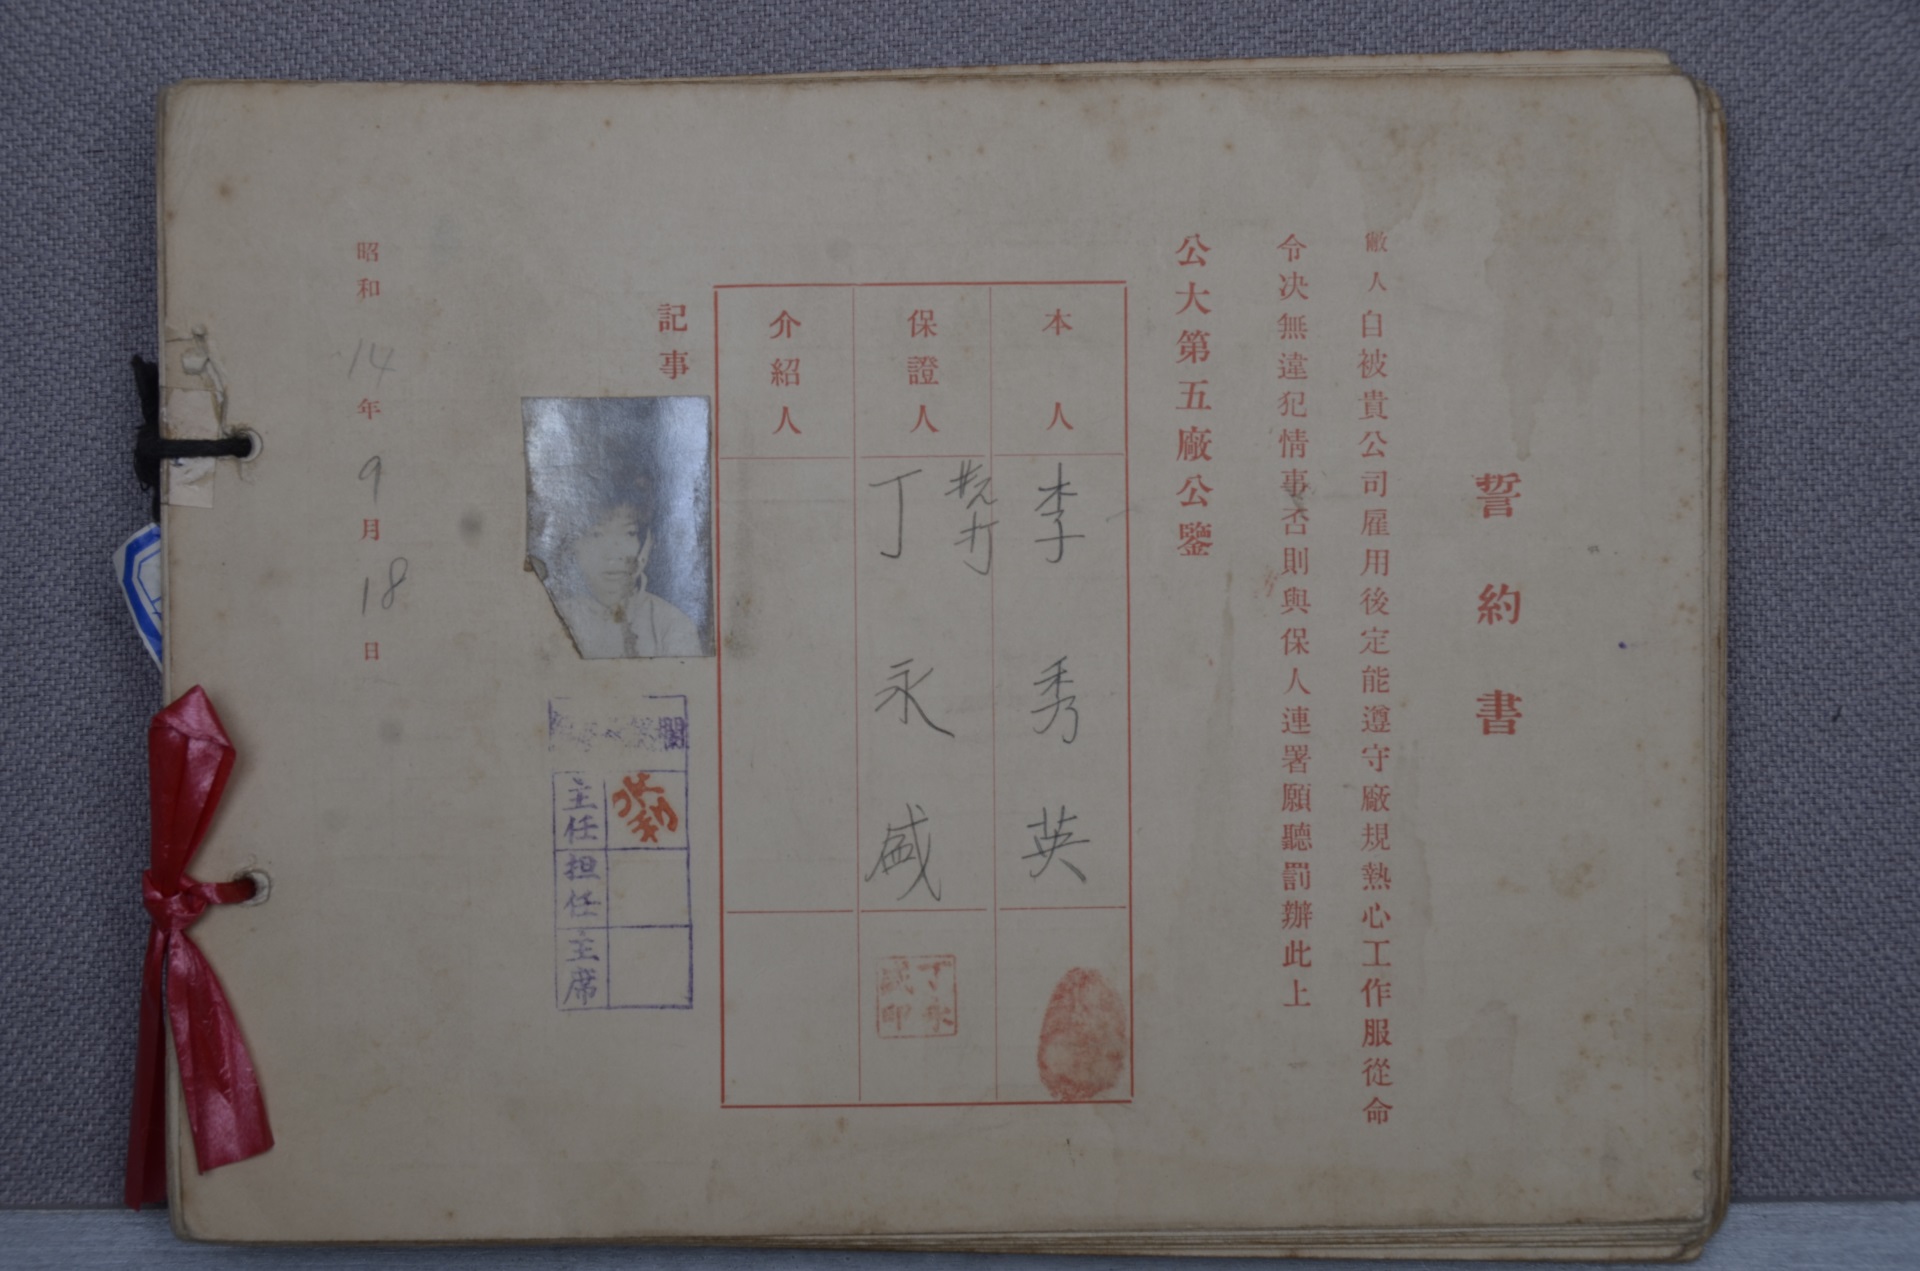 誓約書
敝人自被貴公司雇用後定能遵守廠規熱心工作服從命
令決無違犯情事否則與保人連署願聽罰辦此上
公大第五廠公鑒
本人
李秀英
保證人
丁永盛
丁永盛印
介紹人
記事
主任
担任
主席
昭和14年9月18日